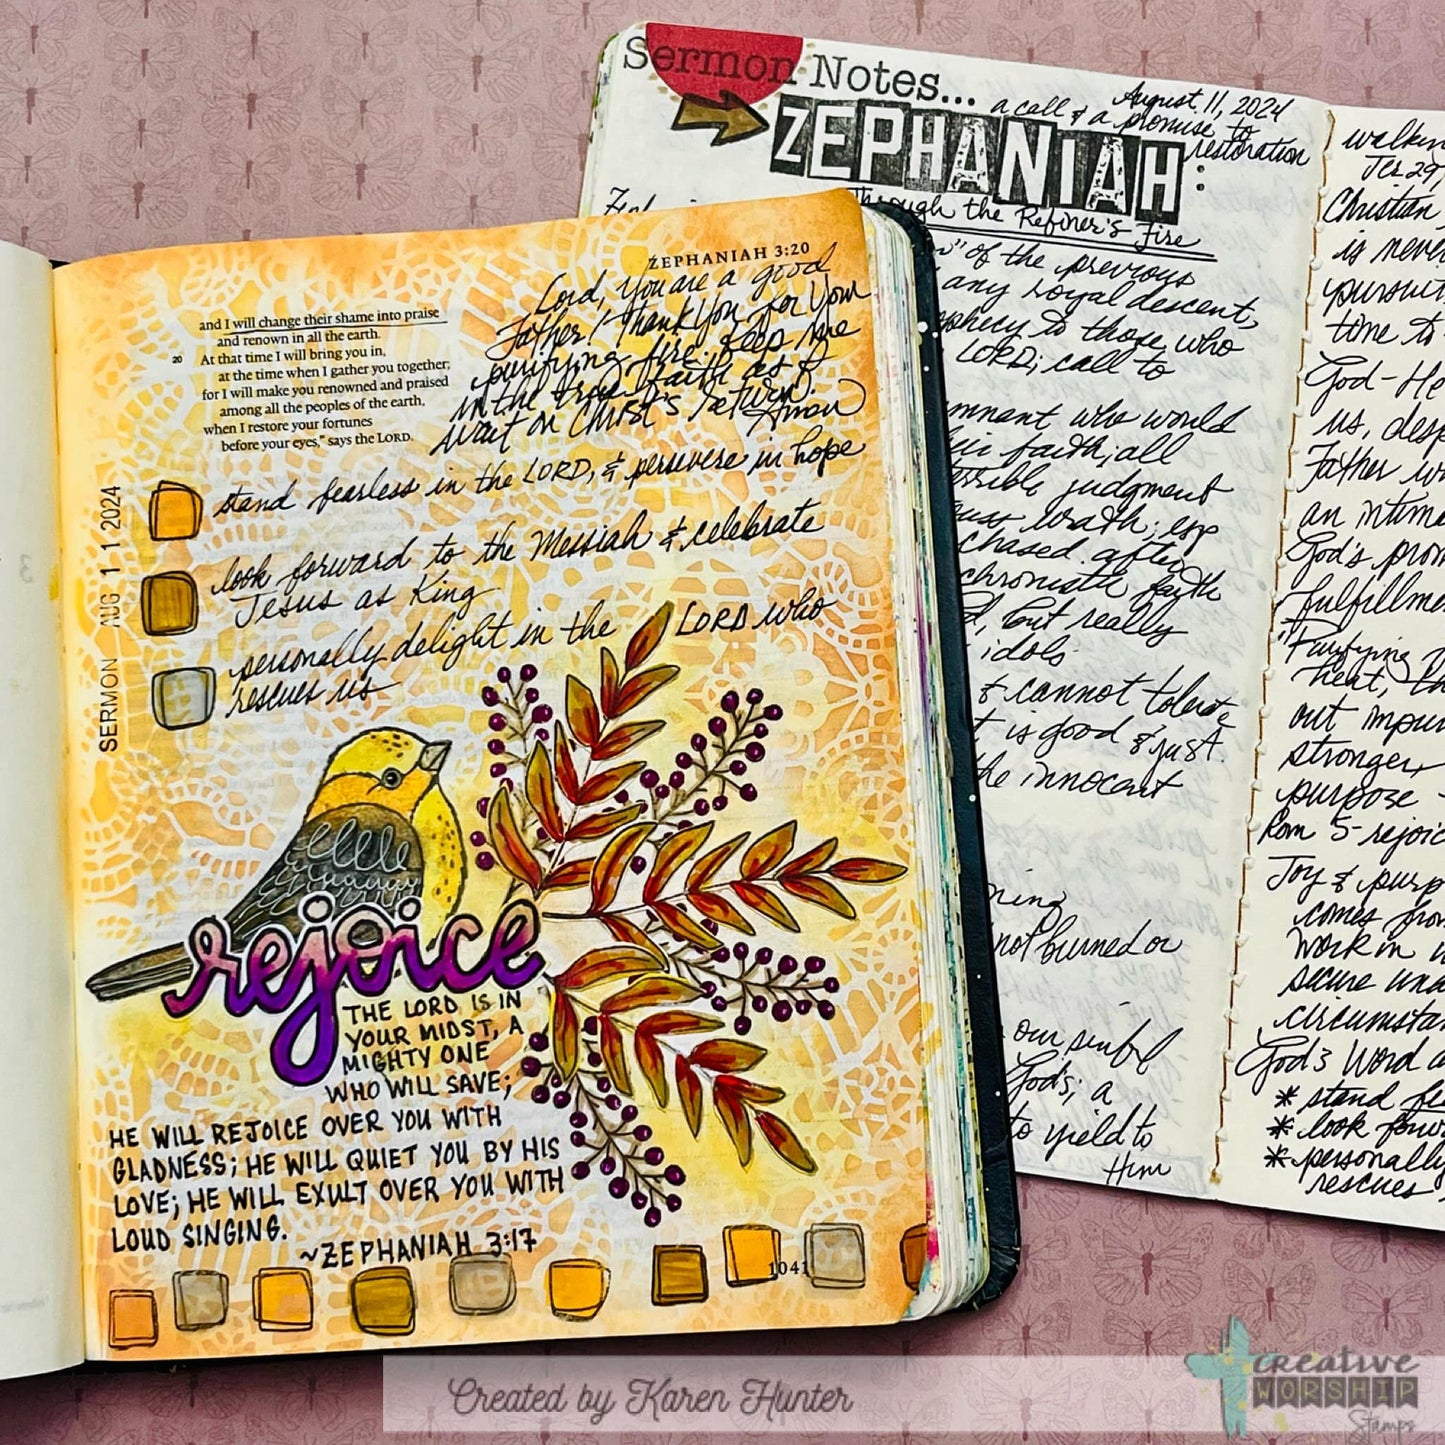 ZEPHANIAH 3:20
and I will change their shame into praise
and renown in all the earth.
20 At that time I will bring you in,
at the time when I gather you together;
for I will make you renowned and praised
among all the peoples of the earth,
when I restore your fortunes
before your eyes," says the LORD.
Lord, You are a good
Father! Thank You for Your
purifying fire. Keep me
in the true faith as I
wait on CHRIST's return.
Amen
stand fearless in the LORD, & persevere in hope
look forward to the Messiah & celebrate
Jesus as King
personally delight in the LORD who
rescues us
SERMON AUG 11 2024
rejoice
THE LORD IS IN
YOUR MIDST, A
MIGHTY ONE
WHO WILL SAVE;
HE WILL REJOICE OVER YOU WITH
GLADNESS; HE WILL QUIET YOU BY HIS
LOVE; HE WILL EXULT OVER YOU WITH
LOUD SINGING.
~ZEPHANIAH 3:17
1041
Sermon Notes...
August 11, 2024
a call & a promise to
restoration
ZEPHANIAH:
Through the Refiner's Fire
of the previous
any royal descent,
to those who
LORD; call to
who would
faith; all
judgment
wrath; esp
chased after
faith
but really
idols
& cannot tolerate
is good & just.
the innocent
not burned or
our sinful
God's; a
to yield to
Him
Jes 29,
Christian
is never
pursuit
time to
God-He
us, desp
Father w
an intima
God's prom
fulfillme
"Purifying
heat, th
out impur
stronger,
purpose -
Rom 5-rejoic
Joy & purp
comes from
work in u
secure una
circumstan
God's Word a
* stand fea
* look forw
* personally
rescues
Created by Karen Hunter
CREATIVE
WORSHIP
Stamps